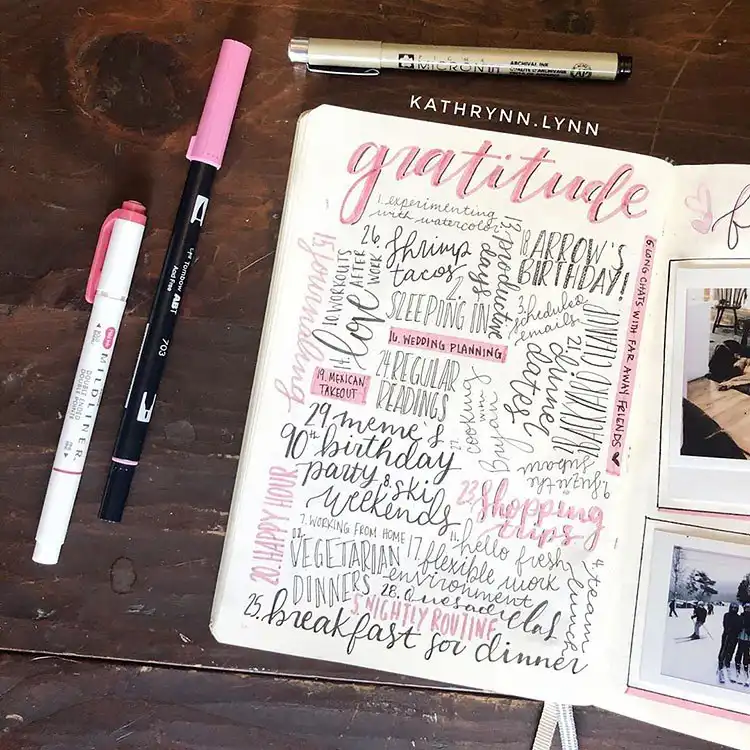 MICRON
ARCHIVAL INK
KATHRYNN.LYNN
gratitude
1. experimenting
with watercolor
26. shrimp
tacos
13. productive
days
BARROW'S
BIRTHDAY!
6. LONG CHATS WITH FAR AWAY FRIENDS
15. journaling
10. WORKOUTS
AFTER
WORK
14. love
2.
SLEEPING IN
3. scheduled
emails
dinner
dates
16. WEDDING PLANNING
19. MEXICAN
TAKEOUT
24. REGULAR
READINGS
cooking
with
ryan
29. meme's
90th birthday
party
8. ski
weekends
23. shopping
trips
20. HAPPY HOUR
7. WORKING FROM HOME
VEGETARIAN
DINNERS
11. hello fresh
17. flexible work
environment
4. team
lunch
28. quesadillas
5. NIGHTLY ROUTINE
25. breakfast for dinner
Tombow ABT
Acid Free
703
MILDLINER
DOUBLE ENDED